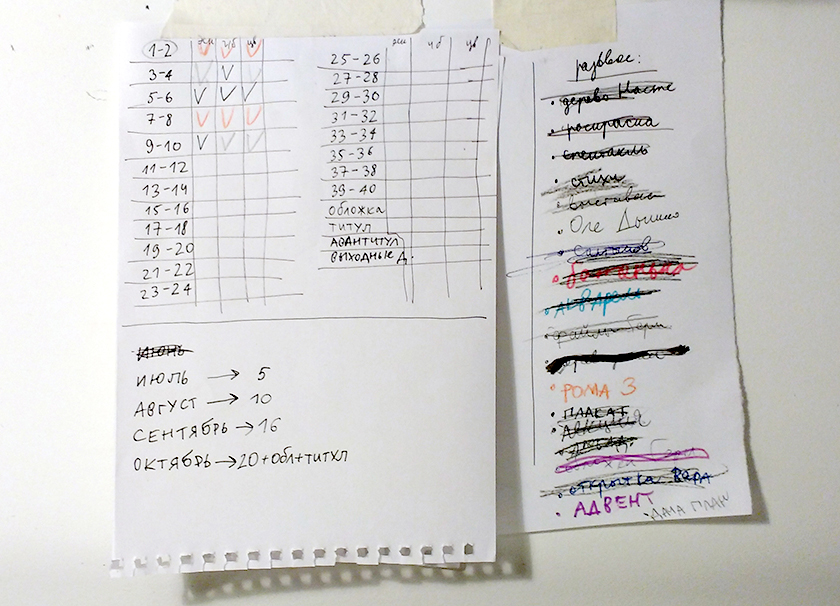 1-2 эск чб цв
3-4
5-6
7-8
9-10
11-12
13-14
15-16
17-18
19-20
21-22
23-24
25-26 чб цв
27-28
29-30
31-32
33-34
35-36
37-38
39-40
обложка
титул
авантитул
выходные д.
июнь
июль → 5
август → 10
сентябрь → 16
октябрь → 20+обл+титул
развес:
дерево Насте
раскраска
спектакль
стихи
Оле
ботинки
акварели
файлы
РОМА 3
ПЛАКАТ
открытка Вера
АДВЕНТ
ДАТА ПЛАН